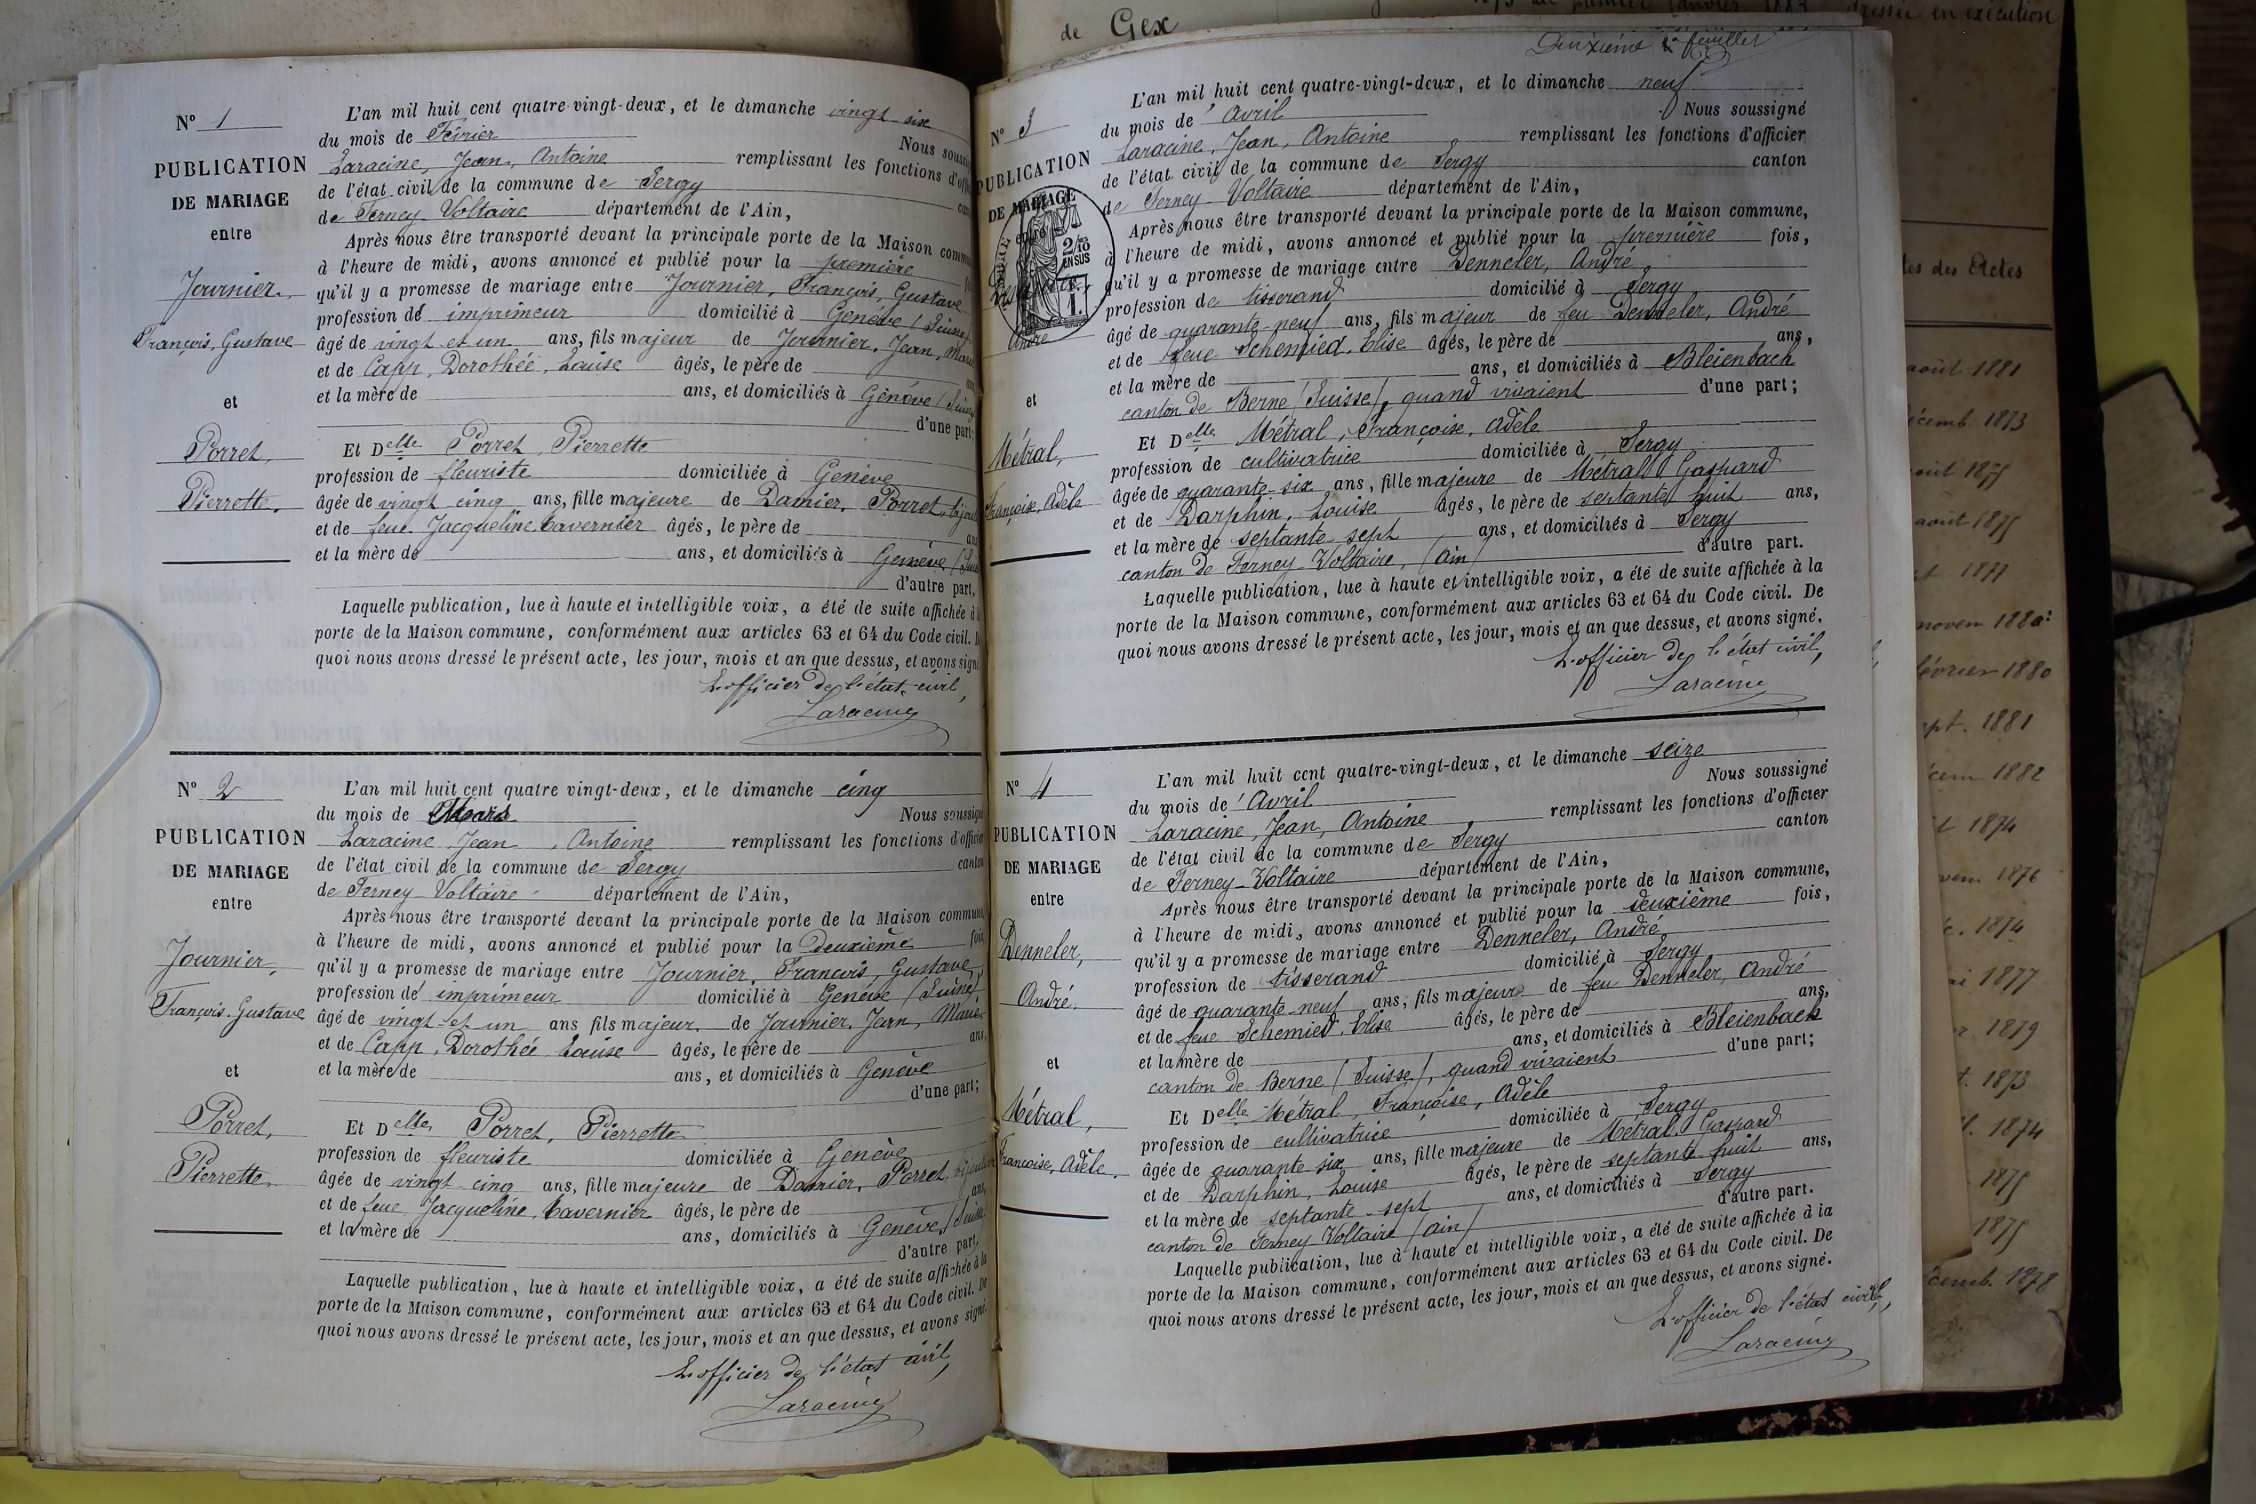 de Gex
dressée en exécution
N° 1
PUBLICATION
DE MARIAGE
entre
Journier,
François, Gustave
et
Porret,
Pierrette.
L'an mil huit cent quatre-vingt-deux, et le dimanche vingt-six
du mois de Février
Nous soussigné
Laracine, Jean, Antoine remplissant les fonctions d'offi
de l'état civil de la commune de Sergy
de Ferney-Voltaire département de l'Ain,
Après nous être transporté devant la principale porte de la Maison commu
à l'heure de midi, avons annoncé et publié pour la première
qu'il y a promesse de mariage entre Journier, François, Gustave
profession de imprimeur domicilié à Genève (Suisse)
âgé de vingt et un ans, fils majeur de Journier, Jean, Marie
et de Capp, Dorothée, Louise âgés, le père de
et la mère de ans, et domiciliés à Genève (Suisse
d'une part;
Et Delle Porret, Pierrette
profession de fleuriste domiciliée à Genève
âgée de vingt cinq ans, fille majeure de Damier, Porret, bijou
et de feue Jacqueline Tavernier âgés, le père de
et la mère de ans, et domiciliés à Genève (Sui
d'autre part,
Laquelle publication, lue à haute et intelligible voix, a été de suite affichée à
porte de la Maison commune, conformément aux articles 63 et 64 du Code civil. D
quoi nous avons dressé le présent acte, les jour, mois et an que dessus, et avons sign
L'officier de l'état civil,
Laracine
N° 2
PUBLICATION
DE MARIAGE
entre
Journier,
François-Gustave
et
Porret,
Pierrette
L'an mil huit cent quatre vingt-deux, et le dimanche cinq
du mois de Mars
Nous soussigné
Laracine, Jean, Antoine remplissant les fonctions d'officier
de l'état civil de la commune de Sergy canton
de Ferney-Voltaire département de l'Ain,
Après nous être transporté devant la principale porte de la Maison commune,
à l'heure de midi, avons annoncé et publié pour la deuxième fois,
qu'il y a promesse de mariage entre Journier, François, Gustave,
profession de imprimeur domicilié à Genève (Suisse)
âgé de vingt et un ans fils majeur de Journier, Jean, Marie
et de Capp, Dorothée Louise âgés, le père de ans,
et la mère de ans, et domiciliés à Genève
d'une part;
Et Delle Porret, Pierrette
profession de fleuriste domiciliée à Genève
âgée de vingt-cinq ans, fille majeure de Damier, Porret, bijoutier
et de feue Jacqueline, Tavernier âgés, le père de ans,
et la mère de ans, domiciliés à Genève (Suisse
d'autre part,
Laquelle publication, lue à haute et intelligible voix, a été de suite affichée à la
porte de la Maison commune, conformément aux articles 63 et 64 du Code civil. De
quoi nous avons dressé le présent acte, les jour, mois et an que dessus, et avons signé.
L'officier de l'état civil,
Laracine
Deuxième feuillet
N° 3
PUBLICATION
DE MARIAGE
entre
2/10
EN SUS
1.
André
et
Métral,
Françoise, Adèle
L'an mil huit cent quatre-vingt-deux, et le dimanche neuf
du mois de Avril
Nous soussigné
Laracine, Jean, Antoine remplissant les fonctions d'officier
de l'état civil de la commune de Sergy canton
de Ferney-Voltaire département de l'Ain,
Après nous être transporté devant la principale porte de la Maison commune,
à l'heure de midi, avons annoncé et publié pour la première fois,
qu'il y a promesse de mariage entre Denneler, André,
profession de tisserand domicilié à Sergy
âgé de quarante-neuf ans, fils majeur de feu Denneler, André
et de feue Schemied, Elise âgés, le père de ans,
et la mère de ans, et domiciliés à Bleienbach
canton de Berne (Suisse), quand vivaient d'une part;
Et Delle Métral, Françoise, Adèle
profession de cultivatrice domiciliée à Sergy
âgée de quarante-six ans, fille majeure de Métral Gaspard
et de Darphin, Louise âgés, le père de septante huit ans,
et la mère de septante-sept ans, et domiciliés à Sergy
canton de Ferney-Voltaire, (Ain) d'autre part.
Laquelle publication, lue à haute et intelligible voix, a été de suite affichée à la
porte de la Maison commune, conformément aux articles 63 et 64 du Code civil. De
quoi nous avons dressé le présent acte, les jour, mois et an que dessus, et avons signé.
L'officier de l'état civil,
Laracine
N° 4
PUBLICATION
DE MARIAGE
entre
Denneler,
André.
et
Métral,
Françoise, Adèle.
L'an mil huit cent quatre-vingt-deux, et le dimanche seize
du mois de Avril
Nous soussigné
Laracine, Jean, Antoine remplissant les fonctions d'officier
de l'état civil de la commune de Sergy canton
de Ferney-Voltaire département de l'Ain,
Après nous être transporté devant la principale porte de la Maison commune,
à l'heure de midi, avons annoncé et publié pour la deuxième fois,
qu'il y a promesse de mariage entre Denneler, André
profession de tisserand domicilié à Sergy
âgé de quarante-neuf ans, fils majeur de feu Denneler, André
et de feue Schemied, Elise âgés, le père de ans,
et la mère de ans, et domiciliés à Bleienbach
canton de Berne (Suisse), quand vivaient d'une part;
Et Delle Métral, Françoise, Adèle
profession de cultivatrice domiciliée à Sergy
âgée de quarante-six ans, fille majeure de Métral, Gaspard
et de Darphin, Louise âgés, le père de septante-huit ans,
et la mère de septante-sept ans, et domiciliés à Sergy
canton de Ferney Voltaire (Ain) d'autre part.
Laquelle publication, lue à haute et intelligible voix, a été de suite affichée à la
porte de la Maison commune, conformément aux articles 63 et 64 du Code civil. De
quoi nous avons dressé le présent acte, les jour, mois et an que dessus, et avons signé.
L'officier de l'état civil,
Laracine
tes des Actes
août 1881
écemb. 1873
août 1875
août 1875
1877
novem 1880
février 1880
pt. 1881
cem 1882
1874
vem 1876
1874
ai 1877
1879
t. 1873
1874
1875
1875
cemb. 1878